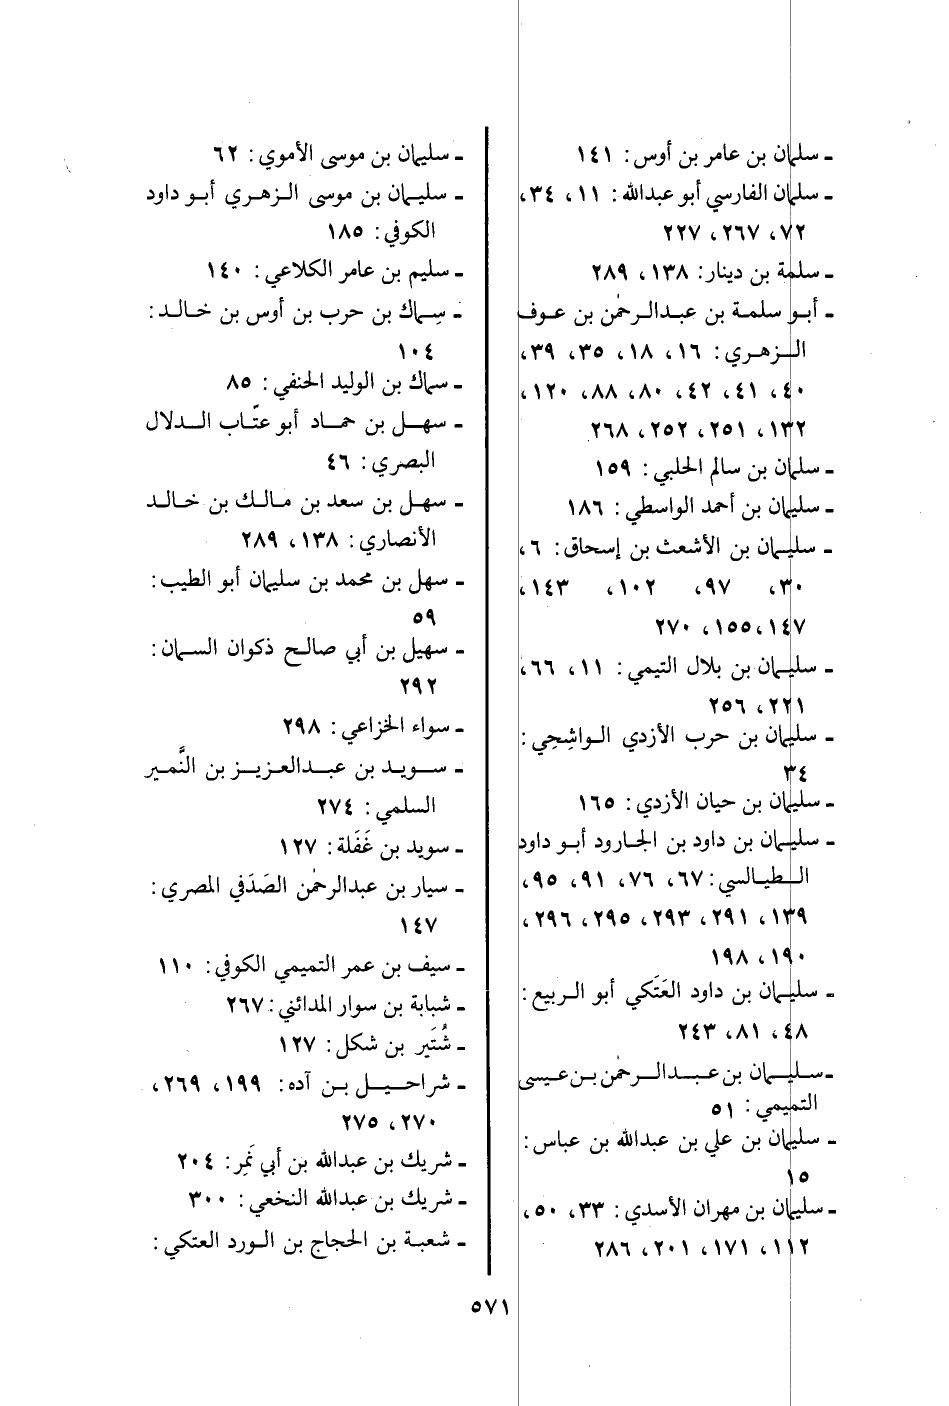 ـ سلمان بن عامر بن أوس: ١٤١
ـ سلمان الفارسي أبو عبدالله: ١١، ٣٤،
٧٢، ٢٦٧، ٢٢٧
ـ سلمة بن دينار: ١٣٨، ٢٨٩
ـ أبو سلمة بن عبدالرحمٰن بن عوف
الزهري: ١٦، ١٨، ٣٥، ٣٩،
٤٠، ٤١، ٤٢، ٨٠، ٨٨، ١٢٠،
١٣٢، ٢٥١، ٢٥٢، ٢٦٨
ـ سلمان بن سالم الحلبي: ١٥٩
ـ سليمان بن أحمد الواسطي: ١٨٦
ـ سليمان بن الأشعث بن إسحاق: ٦،
٣٠، ٩٧، ١٠٢، ١٤٣،
١٤٧،١٥٥، ٢٧٠
ـ سليمان بن بلال التيمي: ١١، ٦٦،
٢٢١، ٢٥٦
ـ سليمان بن حرب الأزدي الواشِحِي:
٣٤
ـ سليمان بن حيان الأزدي: ١٦٥
ـ سليمان بن داود بن الجارود أبو داود
الطيالسي: ٦٧، ٧٦، ٩١، ٩٥،
١٣٩، ٢٩١، ٢٩٣، ٢٩٥، ٢٩٦،
١٩٠، ١٩٨
ـ سليمان بن داود العَتَكي أبو الربيع:
٤٨، ٨١، ٢٤٣
ـ سليمان بن عبدالرحمٰن بن عيسى
التميمي: ٥١
ـ سليمان بن علي بن عبدالله بن عباس:
١٥
ـ سليمان بن مهران الأسدي: ٣٣، ٥٠،
١١٢، ١٧١، ٢٠١، ٢٨٦
ـ سليمان بن موسى الأموي: ٦٢
ـ سليمان بن موسى الزهري أبو داود
الكوفي: ١٨٥
ـ سليم بن عامر الكلاعي: ١٤٠
ـ سِماك بن حرب بن أوس بن خالد:
١٠٤
ـ سماك بن الوليد الحنفي: ٨٥
ـ سهل بن حماد أبو عتّاب الدلال
البصري: ٤٦
ـ سهل بن سعد بن مالك بن خالد
الأنصاري: ١٣٨، ٢٨٩
ـ سهل بن محمد بن سليمان أبو الطيب:
٥٩
ـ سهيل بن أبي صالح ذكوان السمان:
٢٩٢
ـ سواء الخزاعي: ٢٩٨
ـ سويد بن عبدالعزيز بن النَّمير
السلمي: ٢٧٤
ـ سويد بن غَفَلة: ١٢٧
ـ سيار بن عبدالرحمٰن الصَدَفي المصري:
١٤٧
ـ سيف بن عمر التميمي الكوفي: ١١٠
ـ شبابة بن سوار المدائني: ٢٦٧
ـ شُتَير بن شكل: ١٢٧
ـ شراحيل بن آده: ١٩٩، ٢٦٩،
٢٧٠، ٢٧٥
ـ شريك بن عبدالله بن أبي نَمِر: ٢٠٤
ـ شريك بن عبدالله النخعي: ٣٠٠
ـ شعبة بن الحجاج بن الورد العتكي:
٥٧١